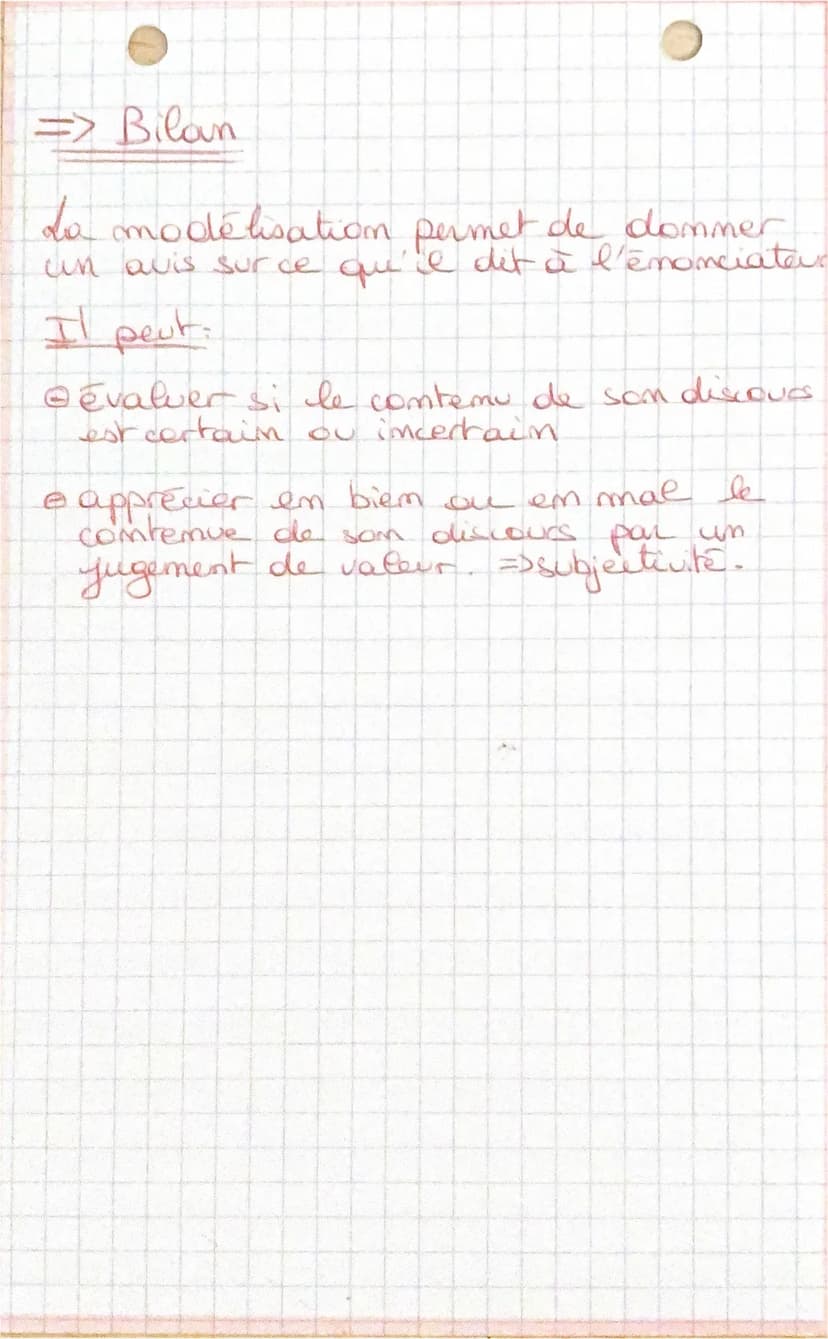 => Bilan
La modélisation permet de donner
un avis sur ce qu'il dit à l'énonciateur
Il peut:
⊖ évaluer si le contenu de son discours
est certain ou incertain
⊖ apprécier en bien ou en mal le
contenue de son discours par un
jugement de valeur. => subjectivité.